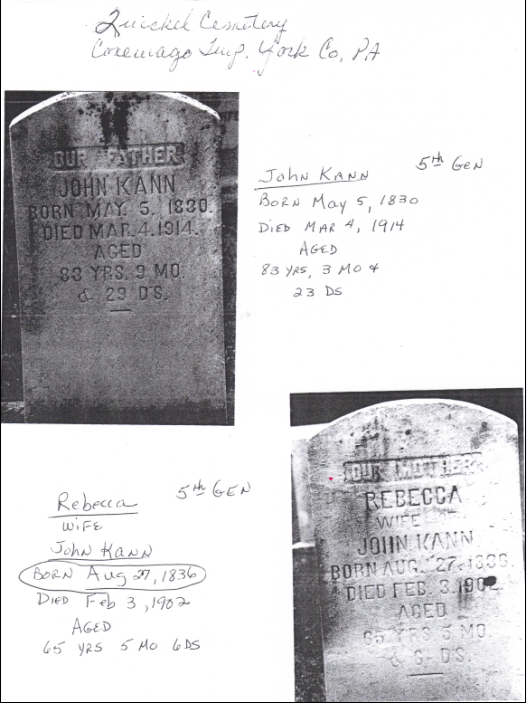 Quickel Cemetery
Conewago Twp. York Co, PA
OUR FATHER
JOHN KANN
BORN MAY. 5. 1830.
DIED MAR. 4. 1914.
AGED
83 YRS. 9 MO.
& 29 D'S.
John Kann 5th Gen
Born May 5, 1830
Died Mar 4, 1914
Aged
83 yrs, 3 mo &
23 Ds
Rebecca 5th Gen
Wife
John Kann
Born Aug 27, 1836
Died Feb 3, 1902
Aged
65 yrs 5 mo 6 Ds
OUR MOTHER
REBECCA
WIFE
JOHN KANN.
BORN AUG. 27. 1836.
DIED FEB. 3. 1902.
AGED
65 YRS 5 MO.
& 6 D'S.